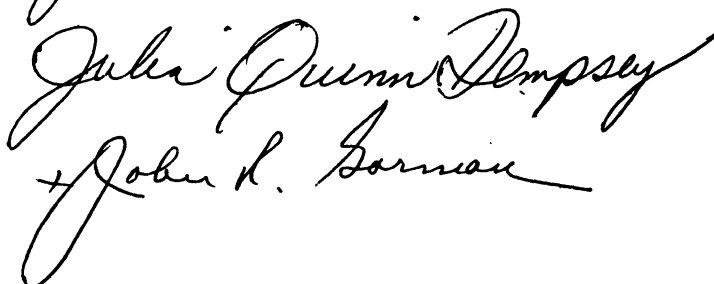 Julia Quinn Dempsey
+ John R. Gorman